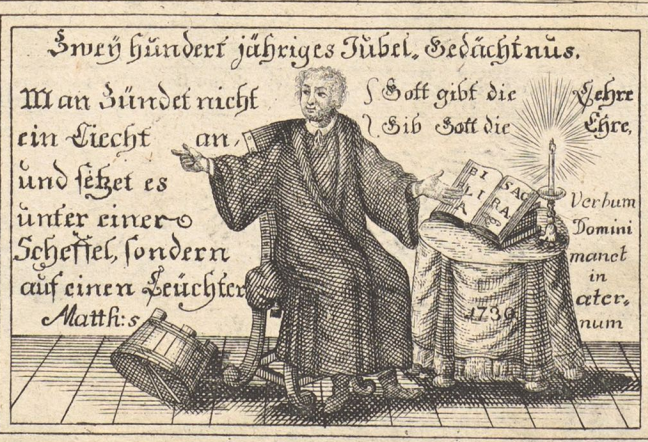 Zweÿ hundert jähriges Jubel-Gedächtnus.
Man Zündet nicht
ein Liecht an,
und setzet es
unter einen
Scheffel, sondern
auf einen Leüchter
Matth: 5
Gott gibt die Lehre
Gib Gott die Ehre,
BI SAC
LI RA
A
Verbum
Domini
manet
in
æter-
num
1730